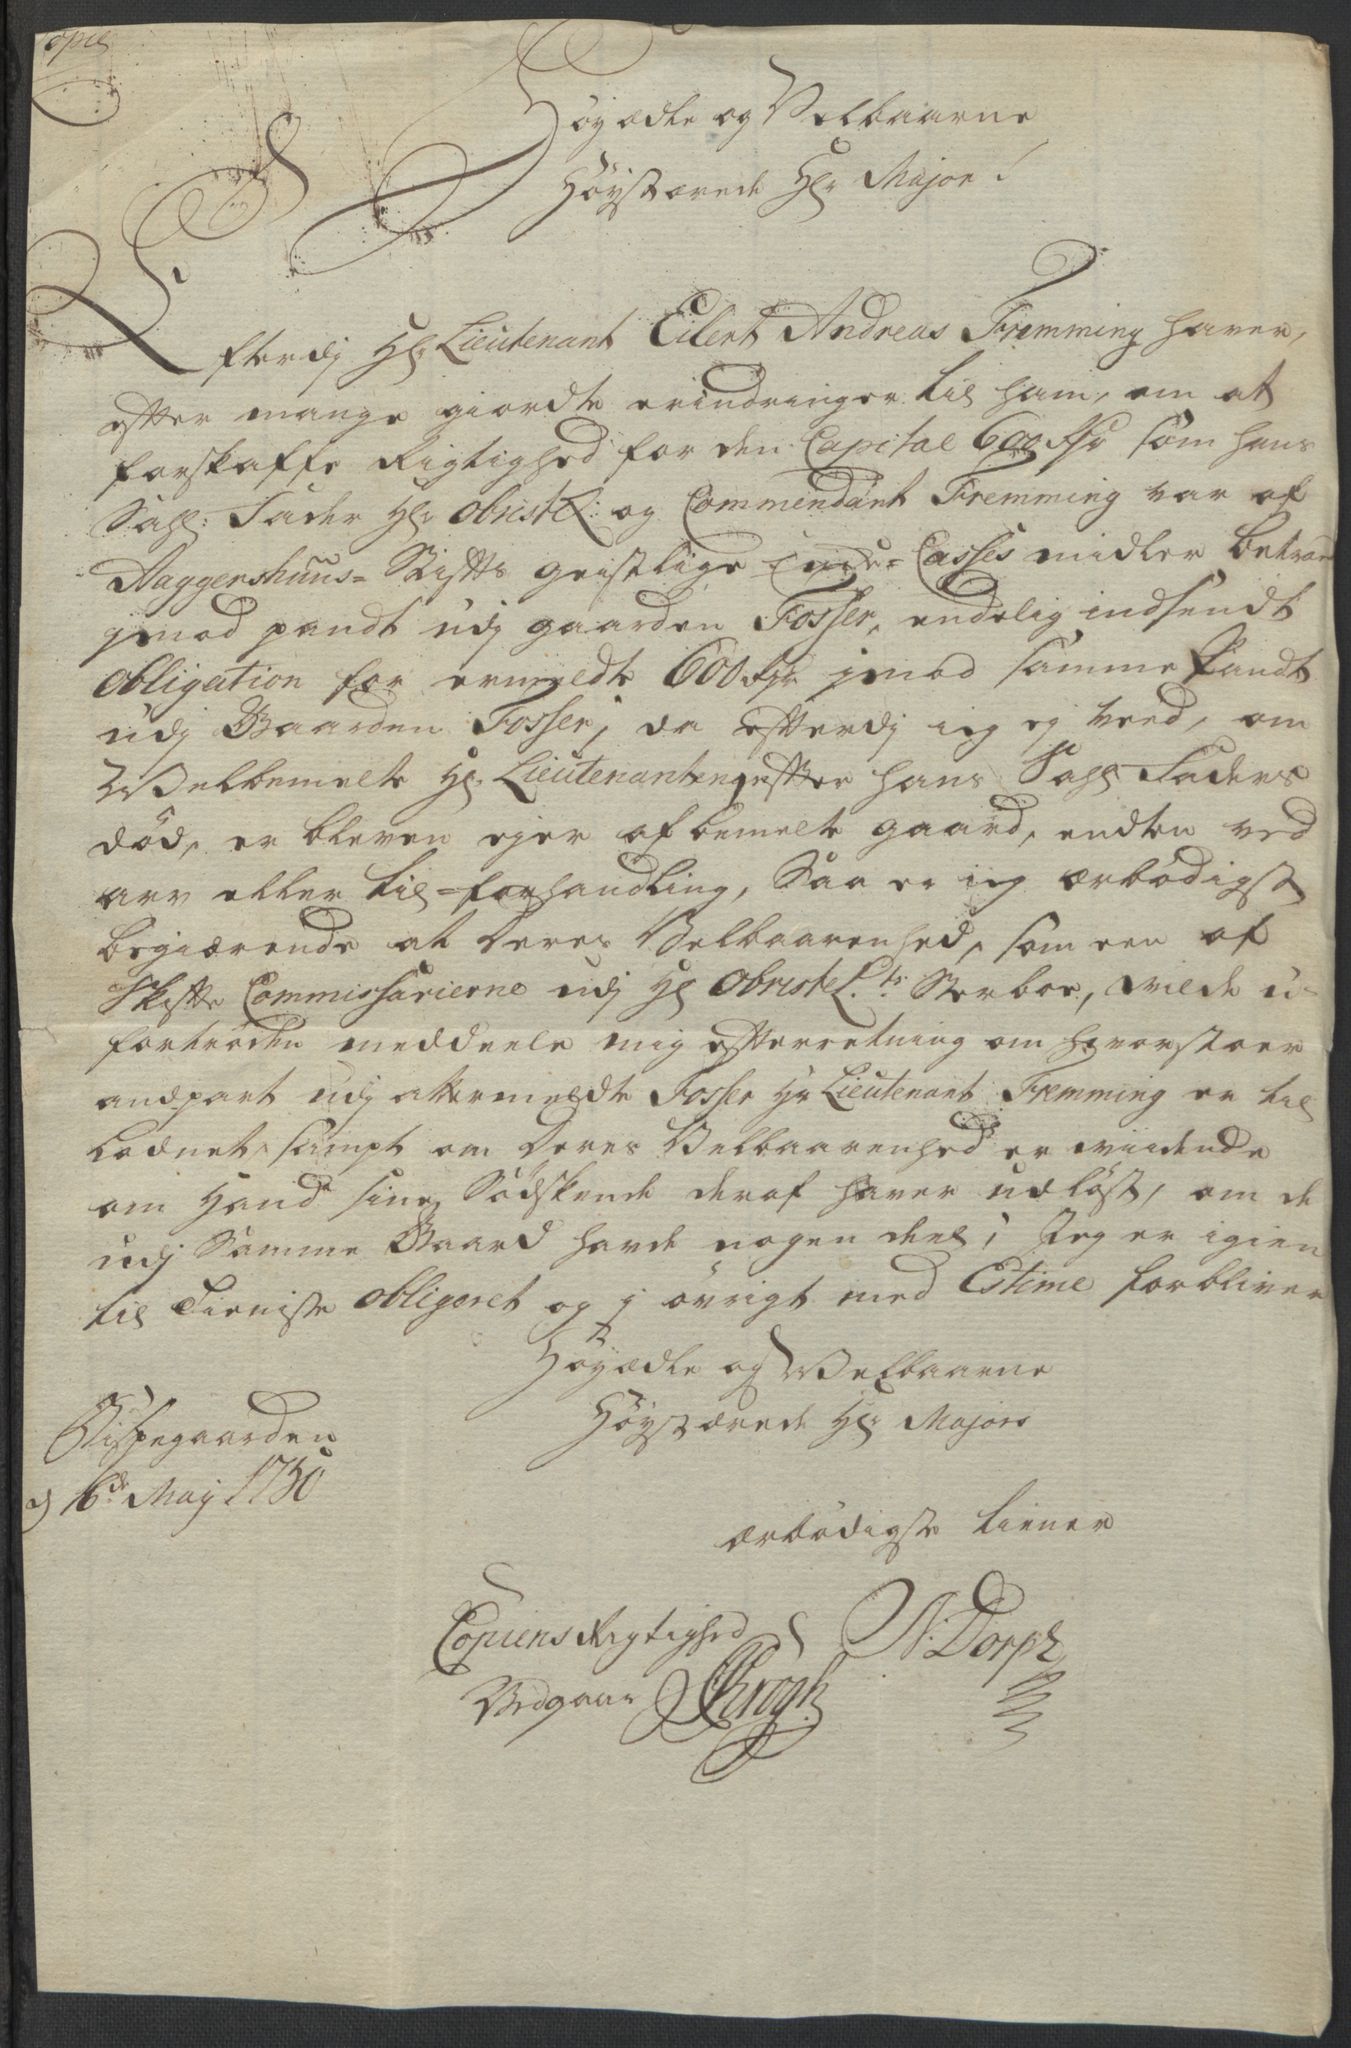 Copie
Höyædle og Velbaarne
Höystærede Hr Major!
Efterdj Hr Lieutenant Eilert Andreas Fremming haver,
efter mange giordte erindringer til ham, om at
forskaffe Rigtighed for den Capital 600 Rdr som hans
Sahl: Fader Hr ObristL: og Commendant Fremming var af
Aaggershuus= Stifts geistlige Enke= Casses midler betroed
jmod pandt udj gaarden Fosser, endelig indsendt
Obligation for ermeldte 600 Rdr jmod samme Pandt
udj Gaarden Fosser, da efterdj ieg ej veed, om
Velbemelte Hr Lieutenanten, efter hans Sahl Faders
död, er bleven ejer af bemelte gaard, endten ved
arv eller til=forhandling, Saa er ieg ærbödigst
begiærende at Deres Velbaarenhed, som een af
Skifte Commissarierne udj Hr ObristeLts: Sterboe, vilde u=
fortröden meddeele mig efterretning om hvor stoer
andpart udj attermeldte Fosser Hr Lieutenant Fremming er til
lodnet, sampt om Deres Velbaarenhed er viidende
om Hand sine Södskende deraf haver udlöst, om de
udj Samme Gaard havde nogen deel; Jeg er igien
til Tieniste obligeret og j övrigt med Estime forbliver
Höyædle og Velbaarne
Höystærede Hr Majors
Bispegaarden
d 16de Maij 1750
ærbödigste tiener
N: Dorph
Copiens Rigtighed
Vedgaar Krogh